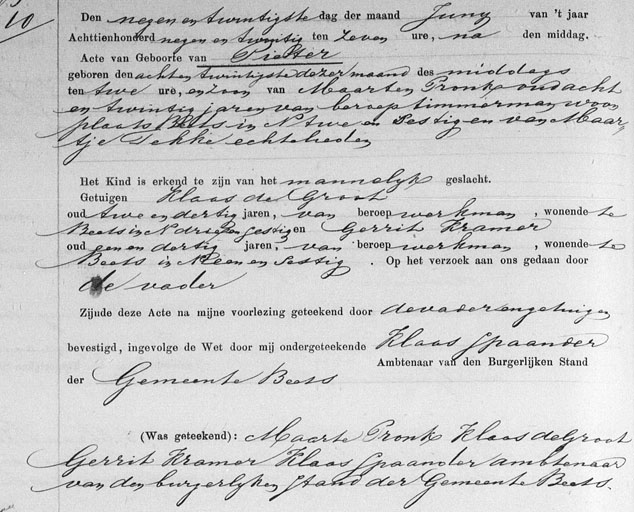 10
Den negen en twintigste dag der maand Juny van 't jaar
Achttienhonderd negen en twintig ten zeven ure, na den middag.
Acte van Geboorte van Pieter
geboren den achten twintigste dezer maand des middags
ten twe ure, en zoon van Maarten Pronk oud acht
en twintig jaren van beroep timmerman woon
plaats Beets in N twe en sestig en van Maar
tje Dekke echtelieden
Het Kind is erkend te zijn van het mannelyk geslacht.
Getuigen Klaas de Groot
oud twe en dertig jaren, van beroep werkman, wonende te
Beets in N drie en sestig en Gerrit Kramer
oud een en dertig jaren, van beroep werkman, wonende te
Beets in N een en sestig. Op het verzoek aan ons gedaan door
de vader
Zijnde deze Acte na mijne voorlezing geteekend door de vader en getuigen
bevestigd, ingevolge de Wet door mij ondergeteekende Klaas Spaander
Ambtenaar van den Burgerlijken Stand
der Gemeente Beets
(Was geteekend): Maarte Pronk Klaas de Groot
Gerrit Kramer Klaas Spaander ambtenaar
van den burgerlyken stand der Gemeente Beets.